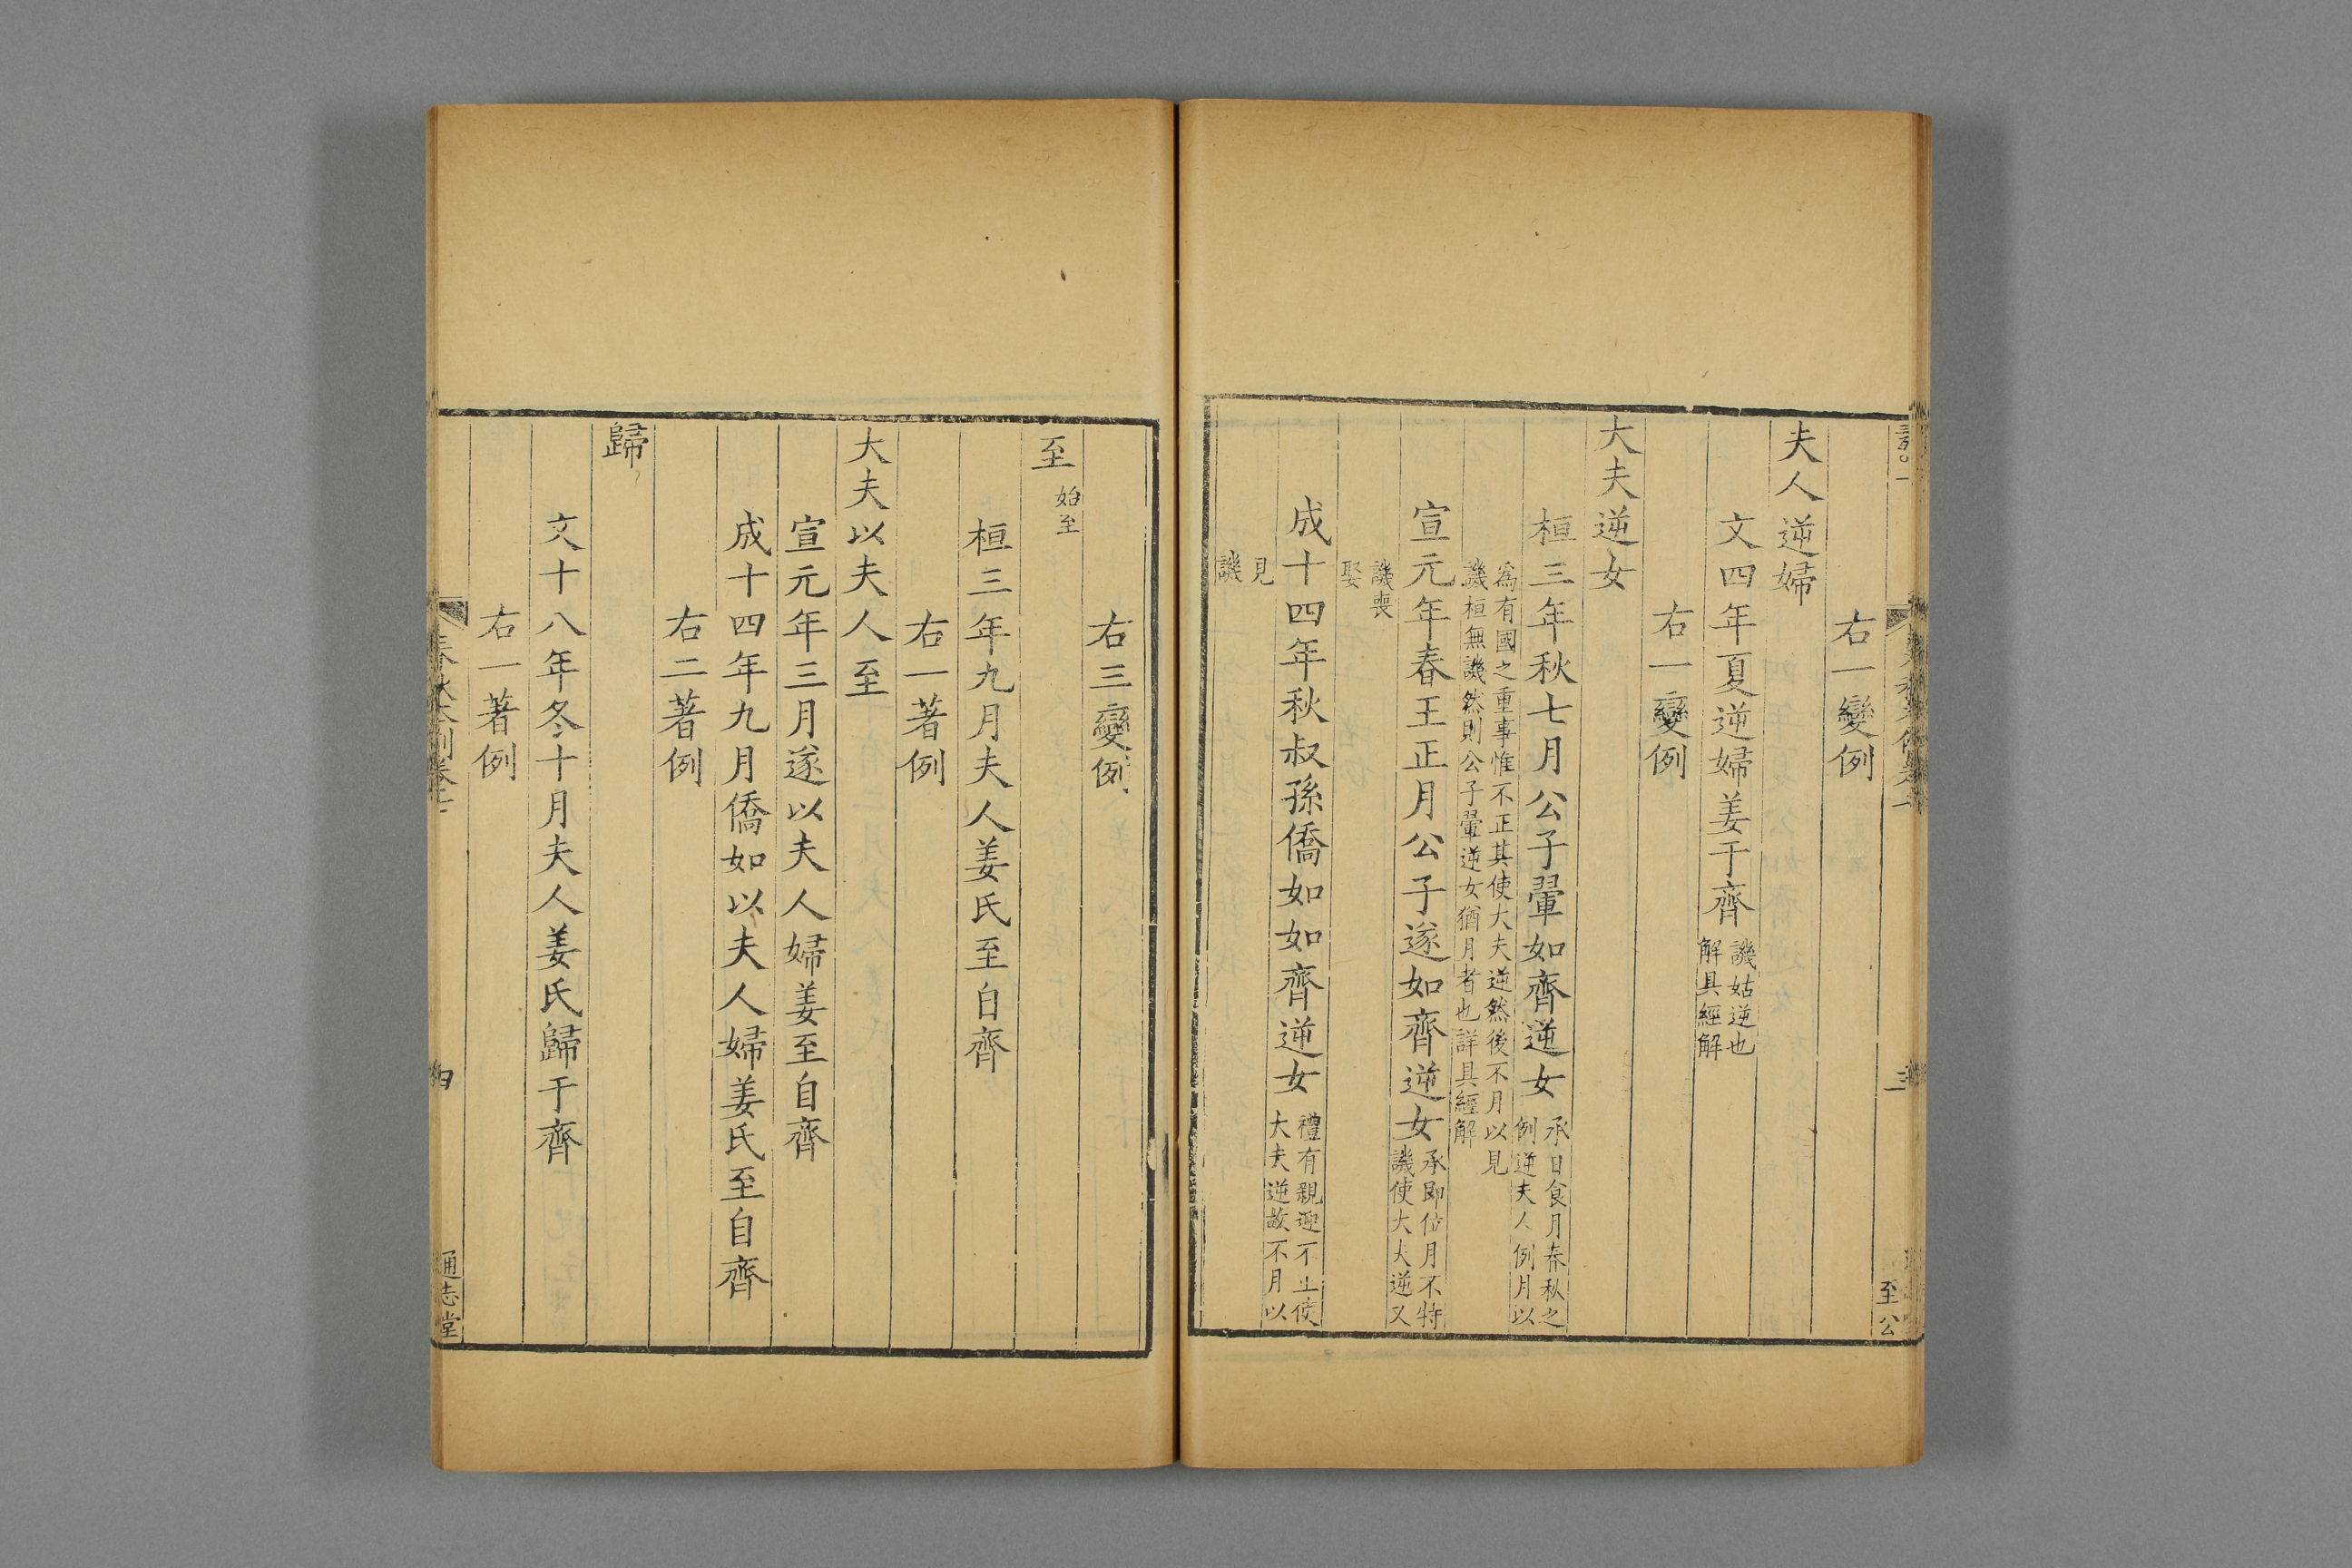 右一變例
夫人逆婦
文四年夏逆婦姜于齊譏姑逆也
解具經解
右一變例
大夫逆女
桓三年秋七月公子翬如齊逆女承日食月春秋之
例逆夫人例月以
爲有國之重事惟不正其使大夫逆然後不月以見
譏桓無譏然則公子翬逆女猶月者也詳具經解
宣元年春王正月公子遂如齊逆女承即位月不特
譏使大夫逆又
譏喪
娶
成十四年秋叔孫僑如如齊逆女禮有親迎不止使
大夫逆故不月以
見
譏
至公
右三變例
至始至
桓三年九月夫人姜氏至自齊
右一著例
大夫以夫人至
宣元年三月遂以夫人婦姜至自齊
成十四年九月僑如以夫人婦姜氏至自齊
右二著例
歸
文十八年冬十月夫人姜氏歸于齊
右一著例
四
通志堂